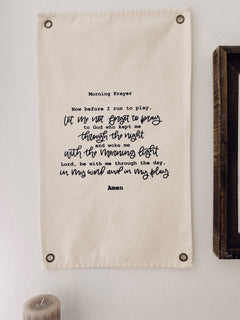 Morning Prayer
Now before I run to play,
let me not forget to pray
to God who kept me
through the night
and woke me
with the morning light
Lord, be with me through the day,
in my work and in my play
Amen